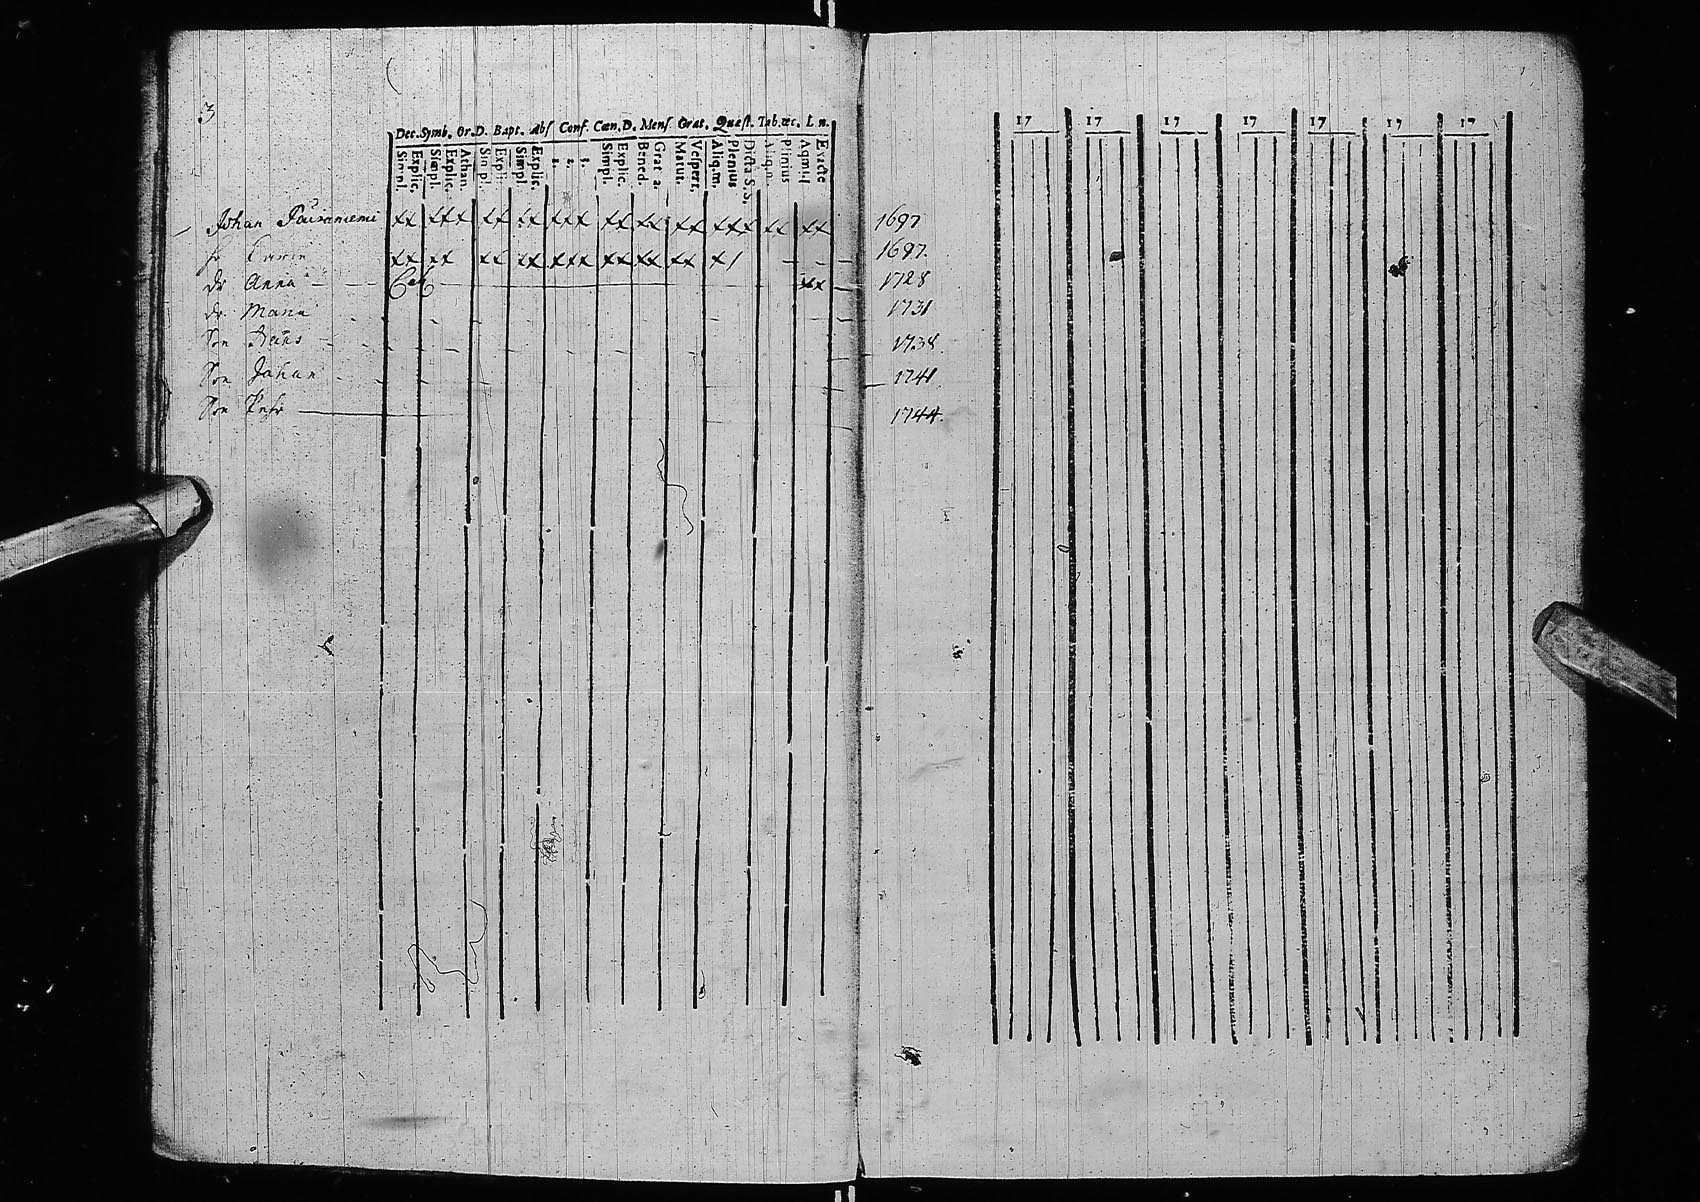 3
Dec. Symb. Or. D. Bapt. Abs Conf. Cœn. D. Mens Grat. Quæst. Tab. œc. L n.
Simpl. Explic. Simpl. Explic. Athan. Simpl. Expli Simpl Explic. 1. 2. 3. Simpl. Explic. Bened. Grat a. Matut. Vespert. Aliq. m. Plenius Dicta S. S. Aliq. n. Plinius Exacte
17 17 17 17 17 17 17
Johan xx xxx xx xx xxx xx xx xx xxx xx xx 1697
xx xx xx xx xxx xx xx xx x/ 1697.
dr Anna xx 1728
dr. Maria 1731
Son 1738.
Son Johan 1741
Son Petr 1744.